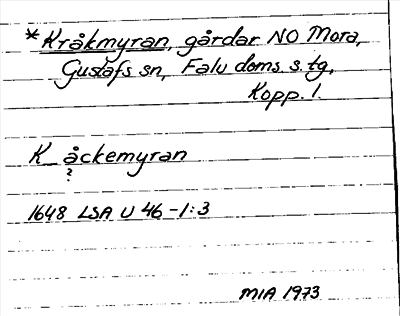 *Kråkmyran, gårdar NO Mora,
Gustafs sn, Falu doms. s. tg,
Kopp. l.
K_åckemyran
?
1648 LSA U 46 - 1:3
MIA 1973